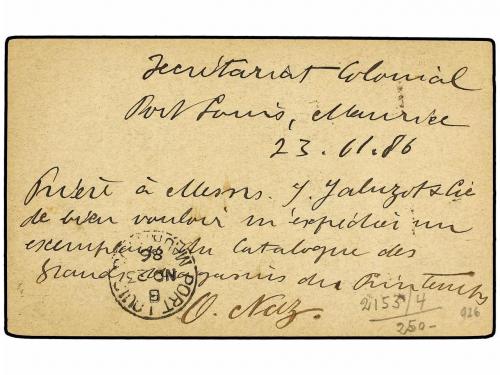 Secrétariat Colonial
Port Louis, Maurice
23.11.86
Prière à Messrs. J. Jaluzot & Cie
de bien vouloir m'expédier un
exemplaire du Catalogue des
Grands Magasins du Printemps
O. Naz.
PORT LOUIS MAURITIUS
B
NO 23
86
2153/4
250-
926